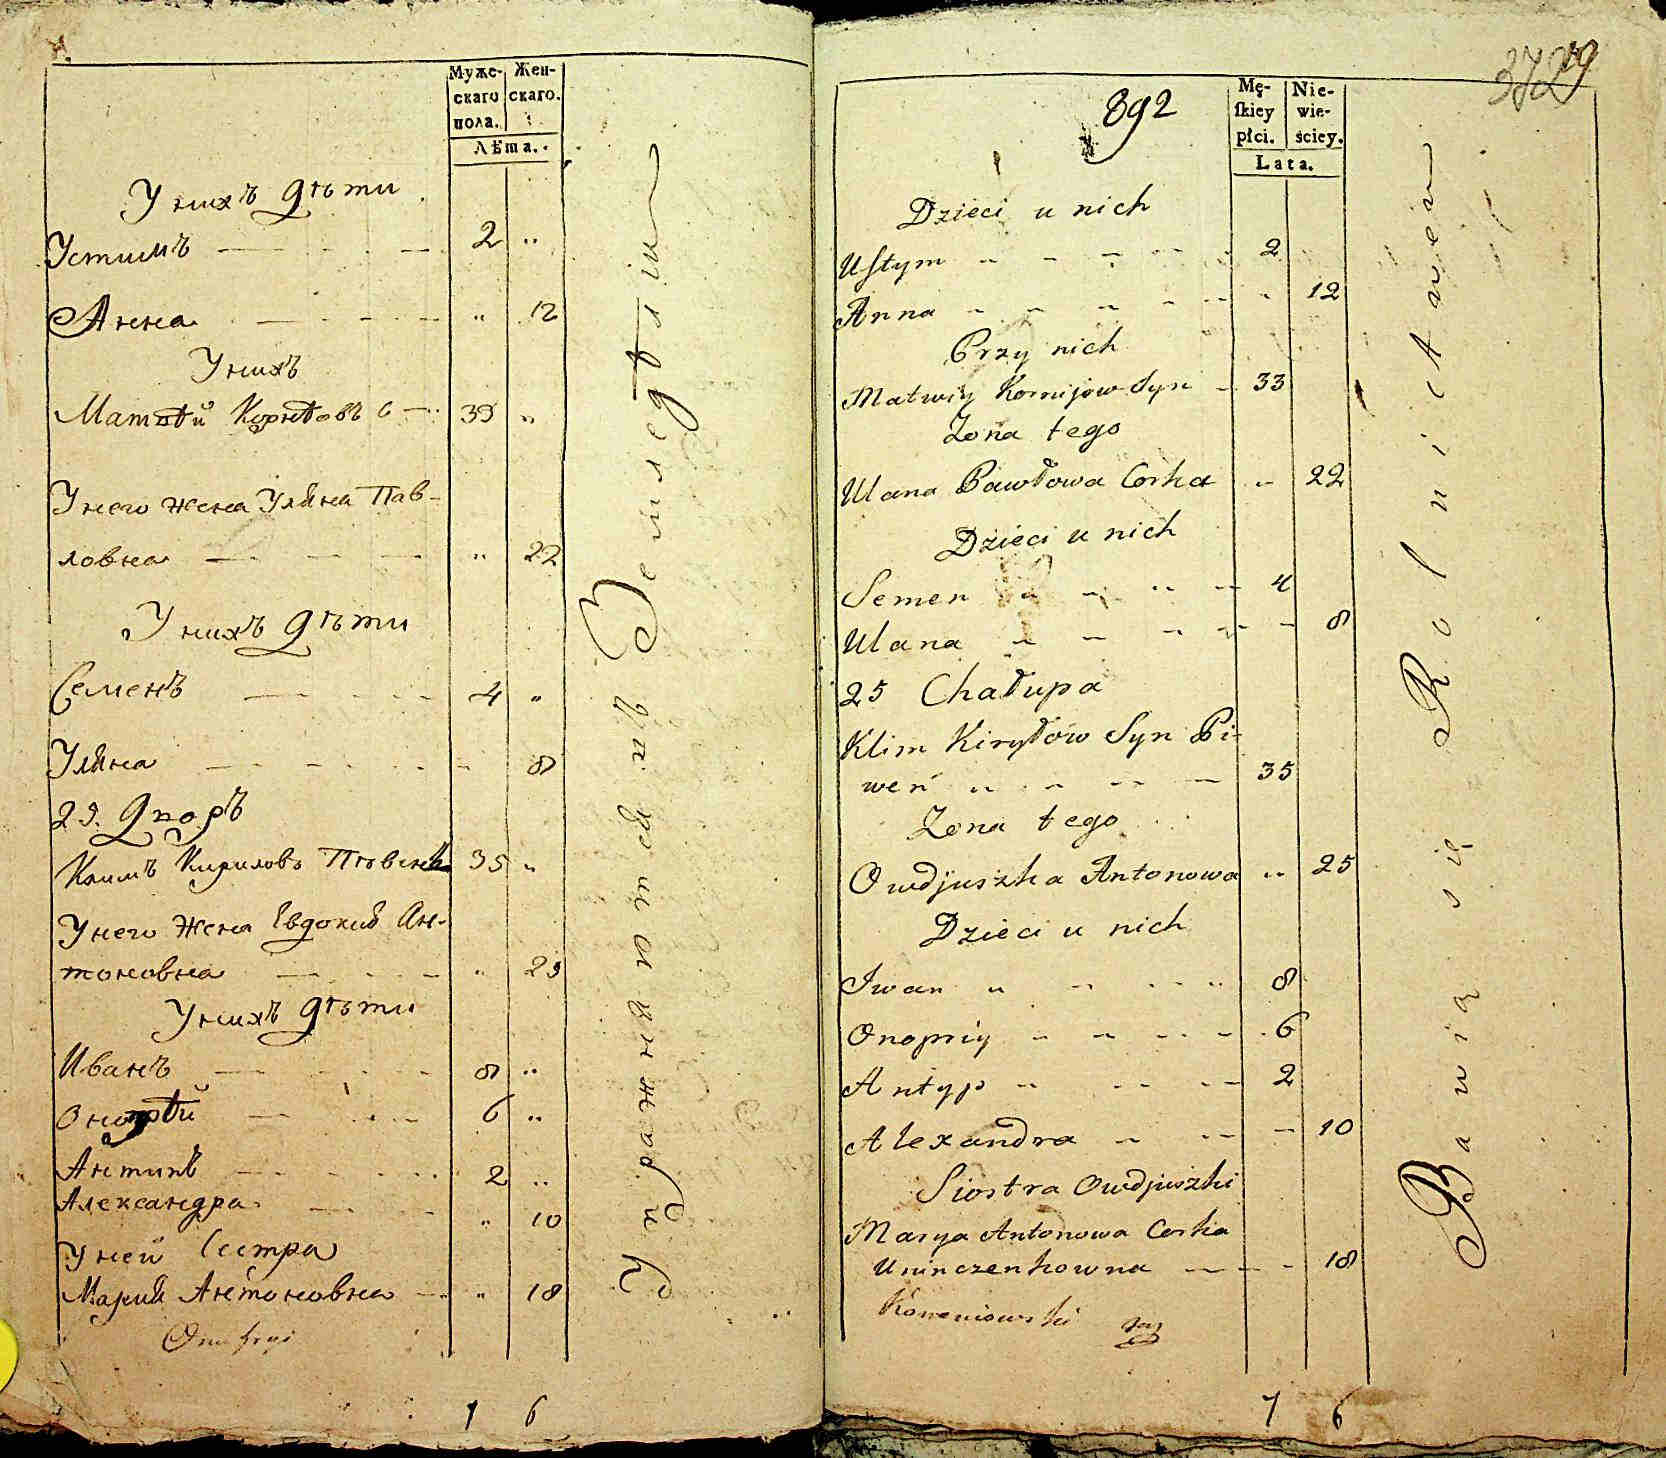 Муже- Жен-
скаго скаго.
пола.
Лѣта.
У нихъ дѣти
Устимъ 2 „
Анна „ 12
У нихъ
Матвѣй Корнѣовъ с 33 „
У него жена Уляна Пав-
ловна „ 22
У нихъ дѣти
Семенъ 4 „
Уляна 8
25. Дворъ
Климъ Кириловъ 35 „
У него жена Евдокия Ан-
тоновна „ 25
У нихъ дѣти
Иванъ 8 „
6 „
Антипъ 2 „
Александра „ 10
У ней Сестра
Мария Антоновна „ 18
7 6
Упражняются въ
892
Mę- Nie-
skiey wie-
płci. ściey.
Lata.
Dzieci u nich
Ustym 2
Anna „ 12
Przy nich
Matwiy Kornijow Syn 33
Zona tego
Ulana Pawłowa Corka „ 22
Dzieci u nich
Semen 4
Ulana 8
25 Chałupa
Klim Kiryłow Syn Pi-
weń 35
Zona tego
Owdjuszka Antonowa „ 25
Dzieci u nich
Iwan 8
Onopriy 6
Antyp 2
Alexandra 10
Siostra Owdjuszki
Marya Antonowa Corka
18
7 6
Bawią się Rolnictwem